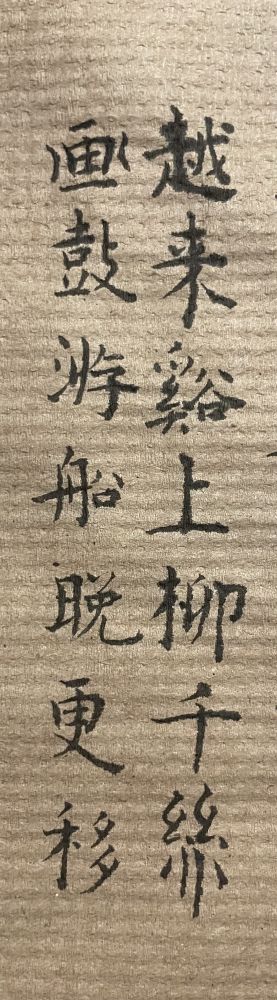 越来谿上柳千絲
画鼓游船晚更移